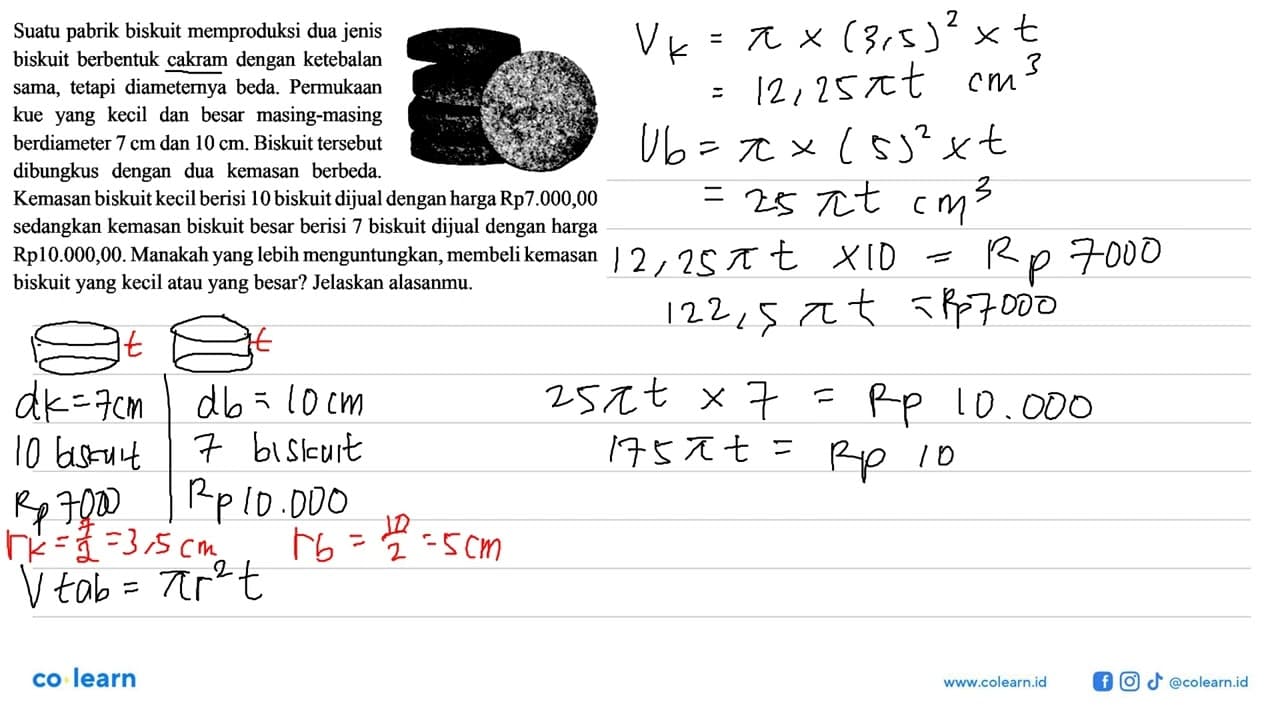 Suatu pabrik biskuit memproduksi dua jenis
biskuit berbentuk cakram dengan ketebalan
sama, tetapi diameternya beda. Permukaan
kue yang kecil dan besar masing-masing
berdiameter 7 cm dan 10 cm. Biskuit tersebut
dibungkus dengan dua kemasan berbeda.
Kemasan biskuit kecil berisi 10 biskuit dijual dengan harga Rp7.000,00
sedangkan kemasan biskuit besar berisi 7 biskuit dijual dengan harga
Rp10.000,00. Manakah yang lebih menguntungkan, membeli kemasan
biskuit yang kecil atau yang besar? Jelaskan alasanmu.
t t
dk = 7cm db = 10 cm
10 biskuit 7 biskuit
Rp 7000 Rp 10.000
rk = 7/2 = 3,5 cm rb = 10/2 = 5 cm
V tab = πr²t
Vk = π × (3,5)² × t
= 12,25πt cm³
Vb = π × (5)² × t
= 25 πt cm³
12,25πt ×10 = Rp 7000
122,5 πt = Rp7000
25πt × 7 = Rp 10.000
175πt = Rp 10
co learn
www.colearn.id
@colearn.id